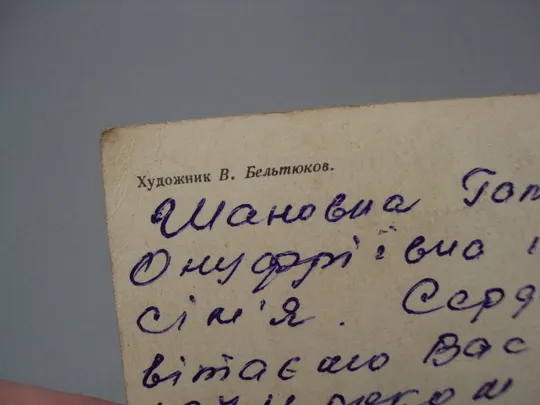 Художник В. Бельтюков.
Шановна
Онуфріївна і
сім'я. Серд
вітаємо Вас
роком